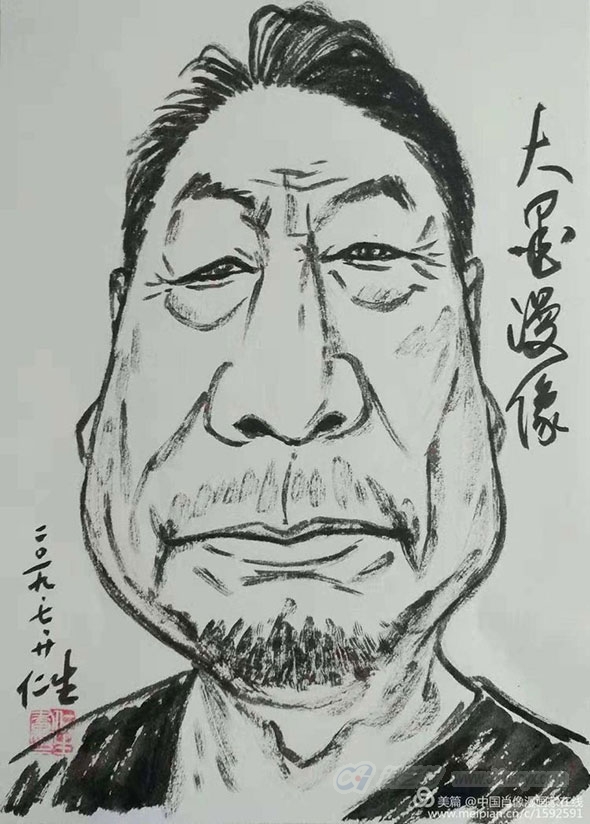 大墨漫像
二〇一九.七.廿
仁生
美篇 @中国肖像漫画家在线
www.meipian.cn/c/1592591